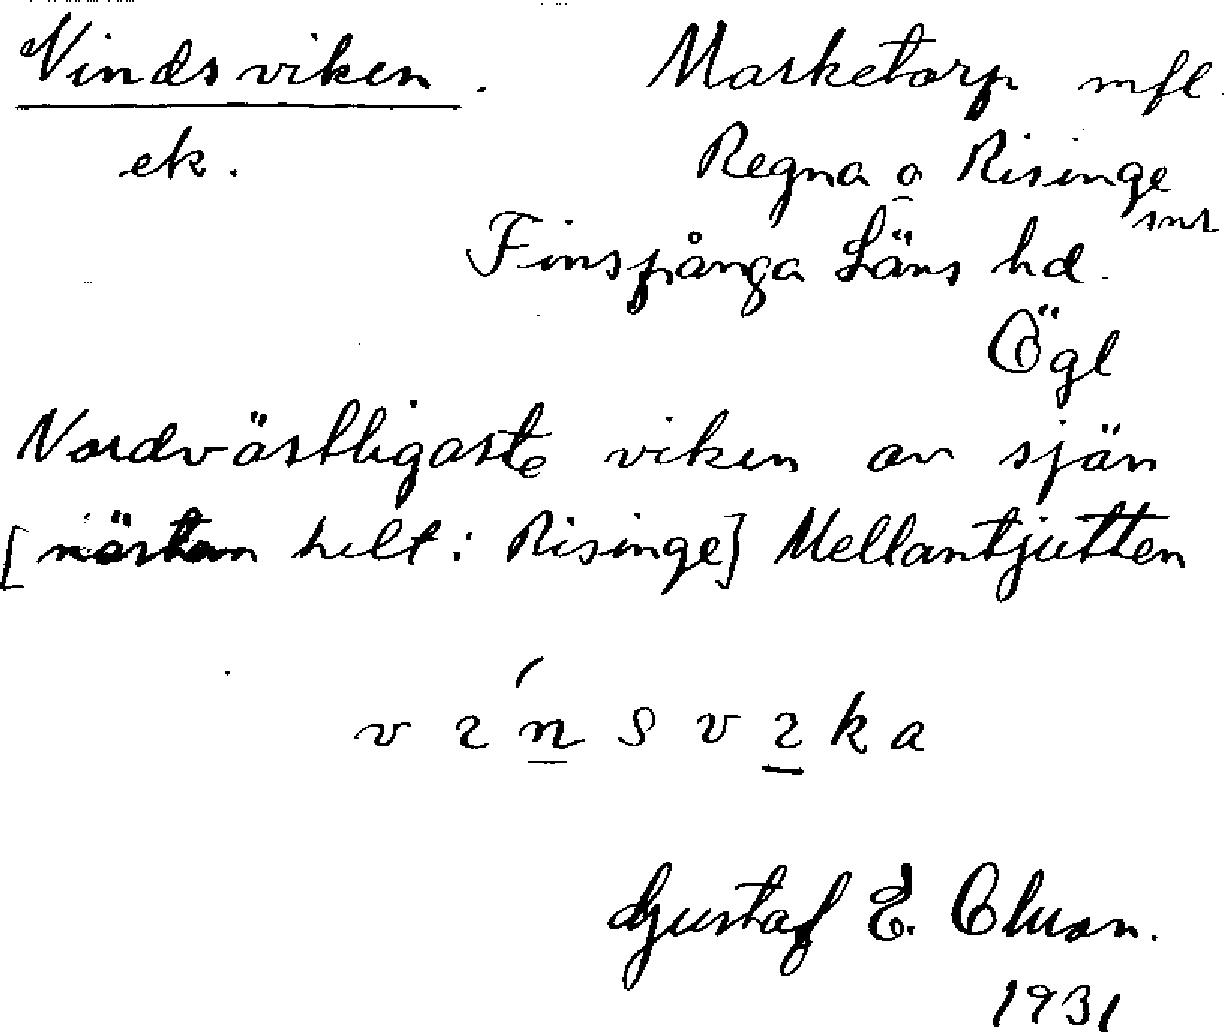 Vindsviken. Marketorp mfl.
ek. Regna o Risinge
snr
Finspånga Läns hd.
Ögl
Nordvästligaste viken av sjön
[nästan helt i Risinge] Mellantjutten
v ı ń s v ı k a
Gustaf E.
1931